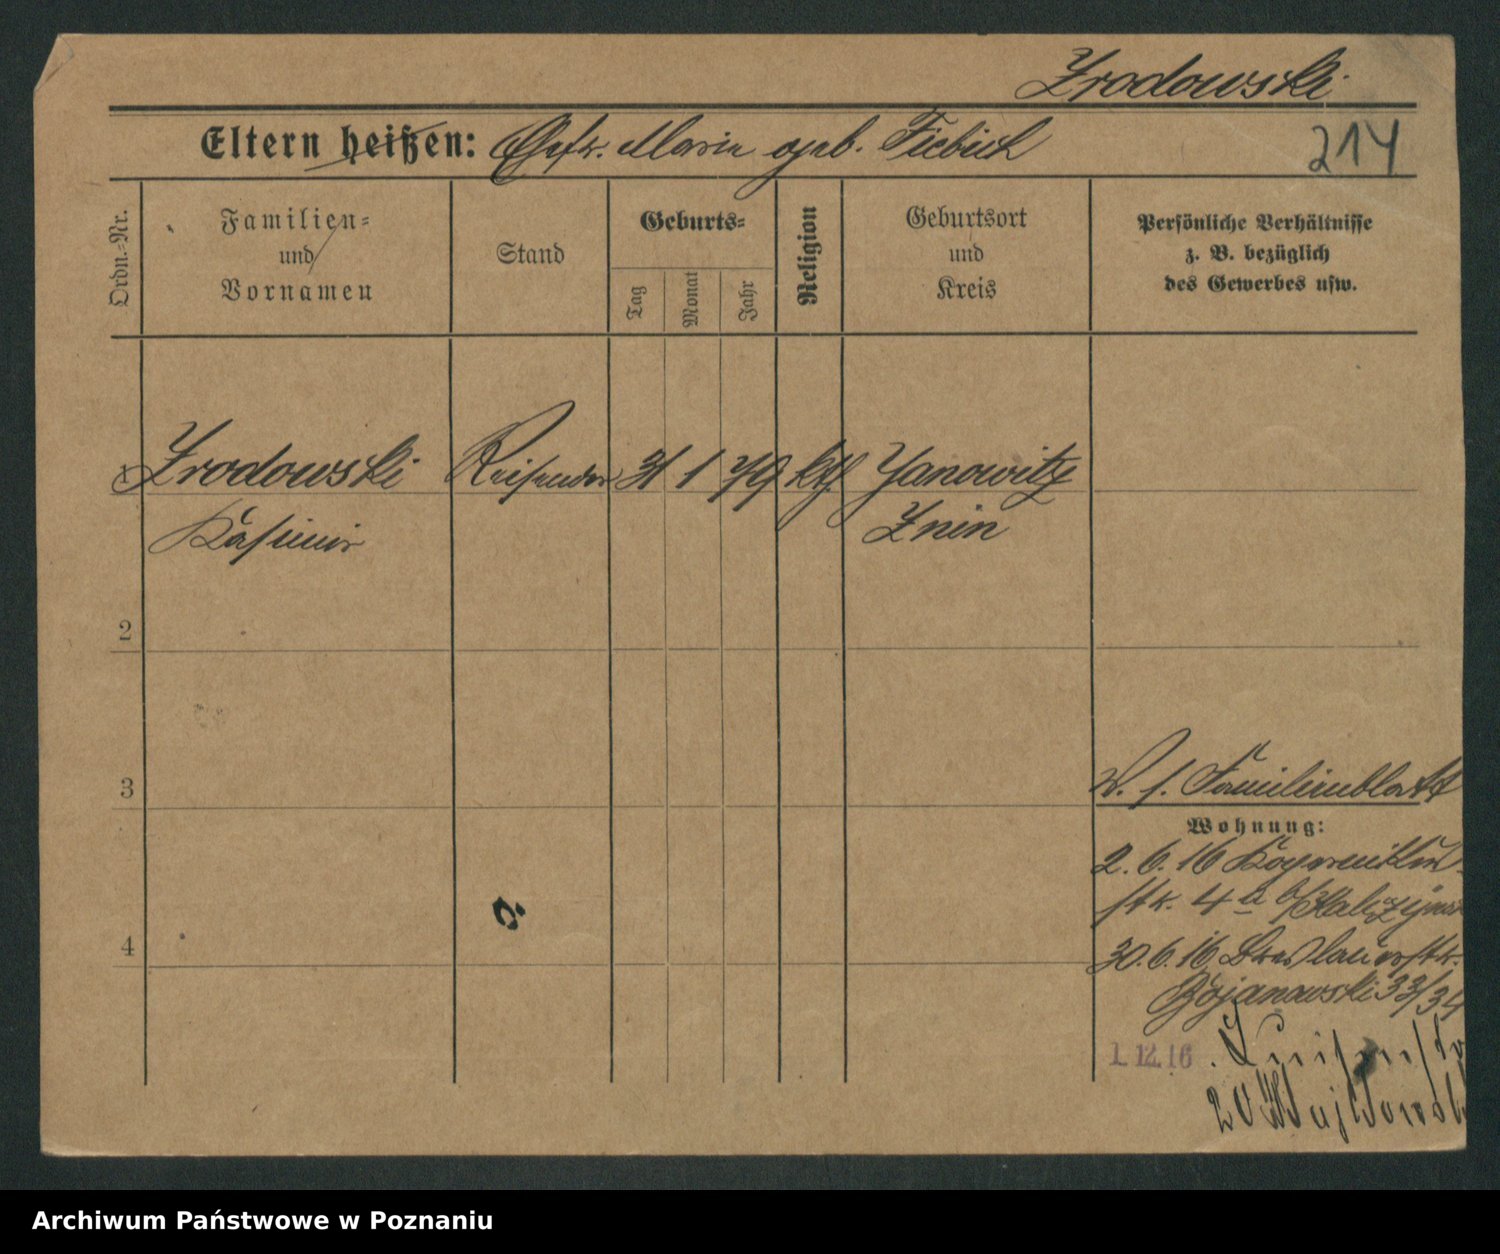 Zrodowski
Eltern heißen: Ehefr. Marie geb. Fiebich
214
Ordn.-Nr.
Familien-
und
Vornamen
Stand
Geburts-
Tag
Monat
Jahr
Religion
Geburtsort
und
Kreis
Persönliche Verhältnisse
z. B. bezüglich
des Gewerbes usw.
1 Zrodowski Reisender 31 1 79 kth Janowitz
Kasimir Znin
2
3
W. s. Familienblatt
Wohnung:
2. 6. 16
str. 4 a b/
4
30. 6. 16 Breslauerstr.
Bojanowski 33/34
1. 12. 16 Luisenstr
20
Archiwum Państwowe w Poznaniu